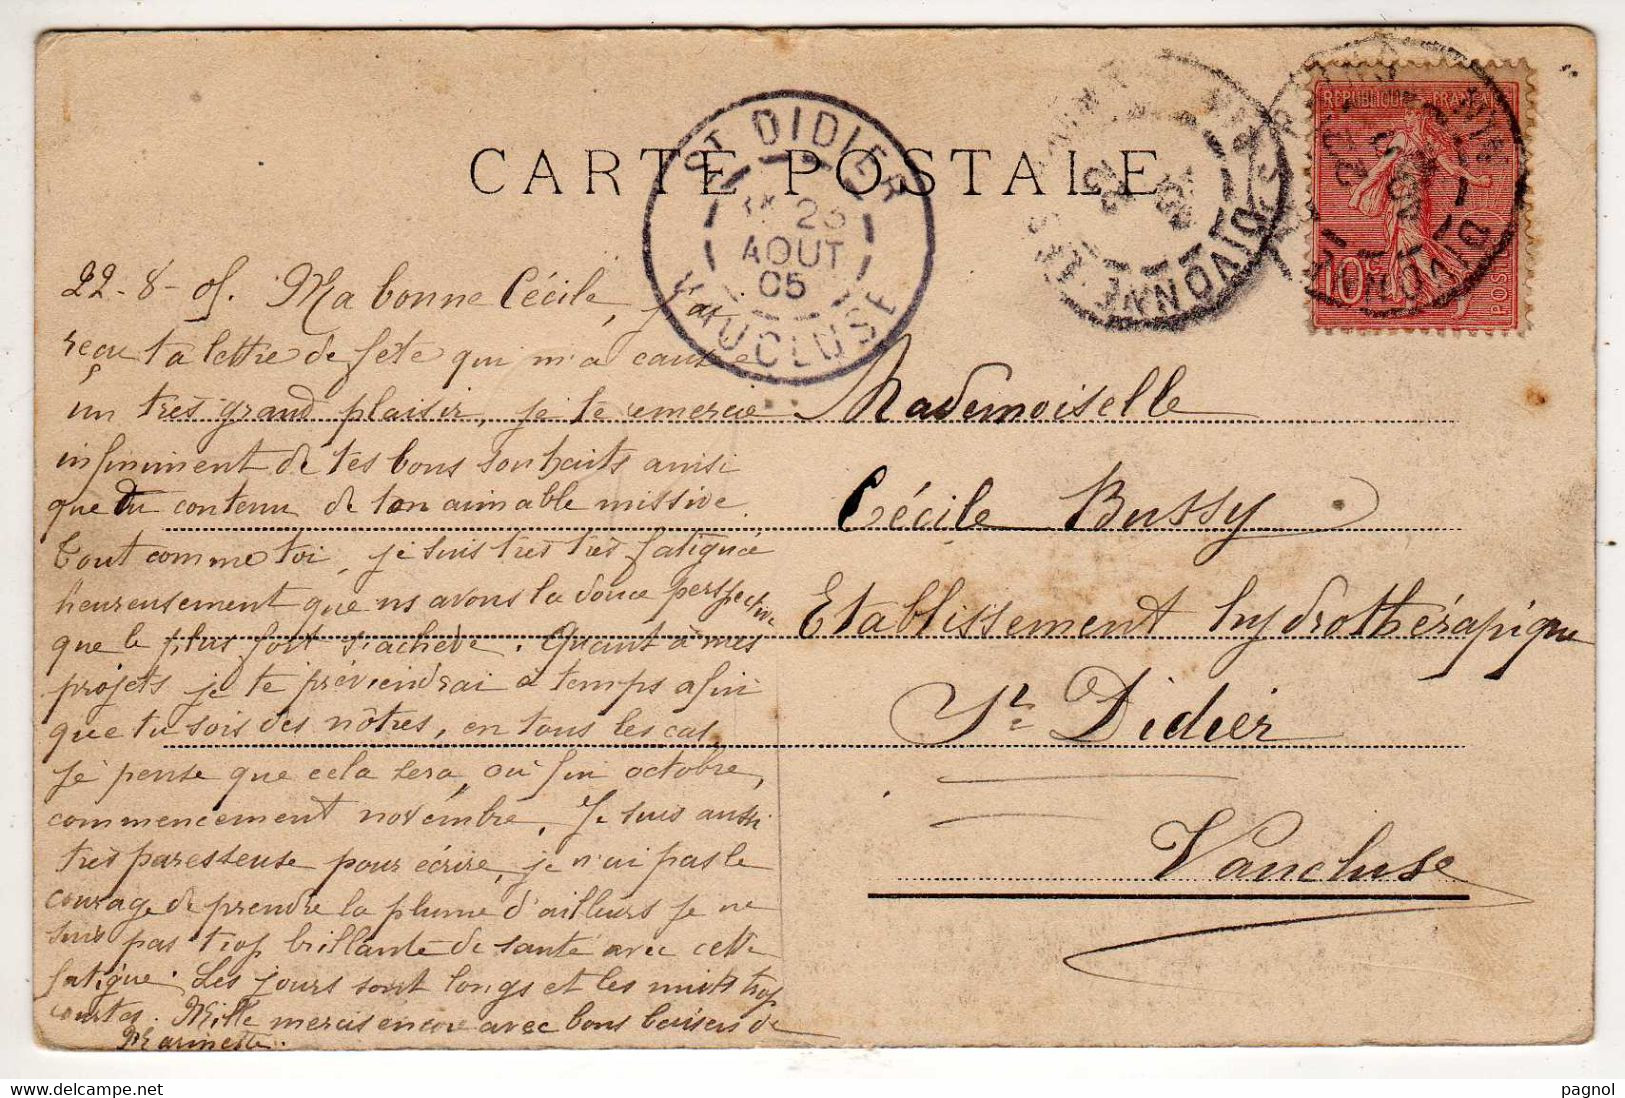 CARTE POSTALE
ST DIDIER
1K 23
AOUT
05
VAUCLUSE
DIVONNE
REPUBLIQUE FRANÇAISE
10c
POSTES
22-8-05. Ma bonne Cécile, j'ai
reçu ta lettre de fête qui m'a causé
un très grand plaisir, je te remercie
infiniment de tes bons souhaits ainsi
que du contenu de ton aimable missive.
Tout comme toi, je suis très très fatiguée
heureusement que ns avons la douce perspective
que le plus fort s'achève. Quant à mes
projets je te préviendrai à temps afin
que tu sois des nôtres, en tous les cas,
je pense que cela sera, ou fin octobre,
commencement novembre. Je suis aussi
très paresseuse pour écrire, je n'ai pas le
courage de prendre la plume d'ailleurs je ne
suis pas trop brillante de santé avec cette
fatigue. Les jours sont longs et les nuits trop
courtes. Mille mercis encore avec bons baisers de
Marinette.
Mademoiselle
Cécile Bussy
Etablissement hydrothérapique
St Didier
Vaucluse
pagnol